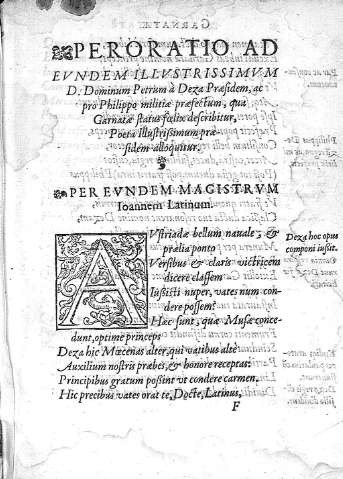 PERORATIO, AD
EVNDEM ILLVSTRISSIMVM
D: Dominum Petrum à Deza Præsidem, ac
pro Philippo militiæ præfectum, qua
Garnatæ status fœlix describitur,
Poeta illustrissimum præ-
sidem alloquitur.
PER EVNDEM MAGISTRVM
Ioannem Latinum.
AVstriadæ bellum nauale, &
prælia ponto
Deza hoc opus
componi iussit.
Versibus & claris victricem
dicere classem
Iussisti nuper, vates num con-
dere possem?
Hæc sunt, quæ Musæ conce-
dunt, optime princeps
Deza hic Mœcenas alter, qui vatibus alte
Auxilium nostris præbes, & honore receptas:
Principibus gratum possint vt condere carmen.
Hic precibus vates orat te, Docte, Latinus,
F